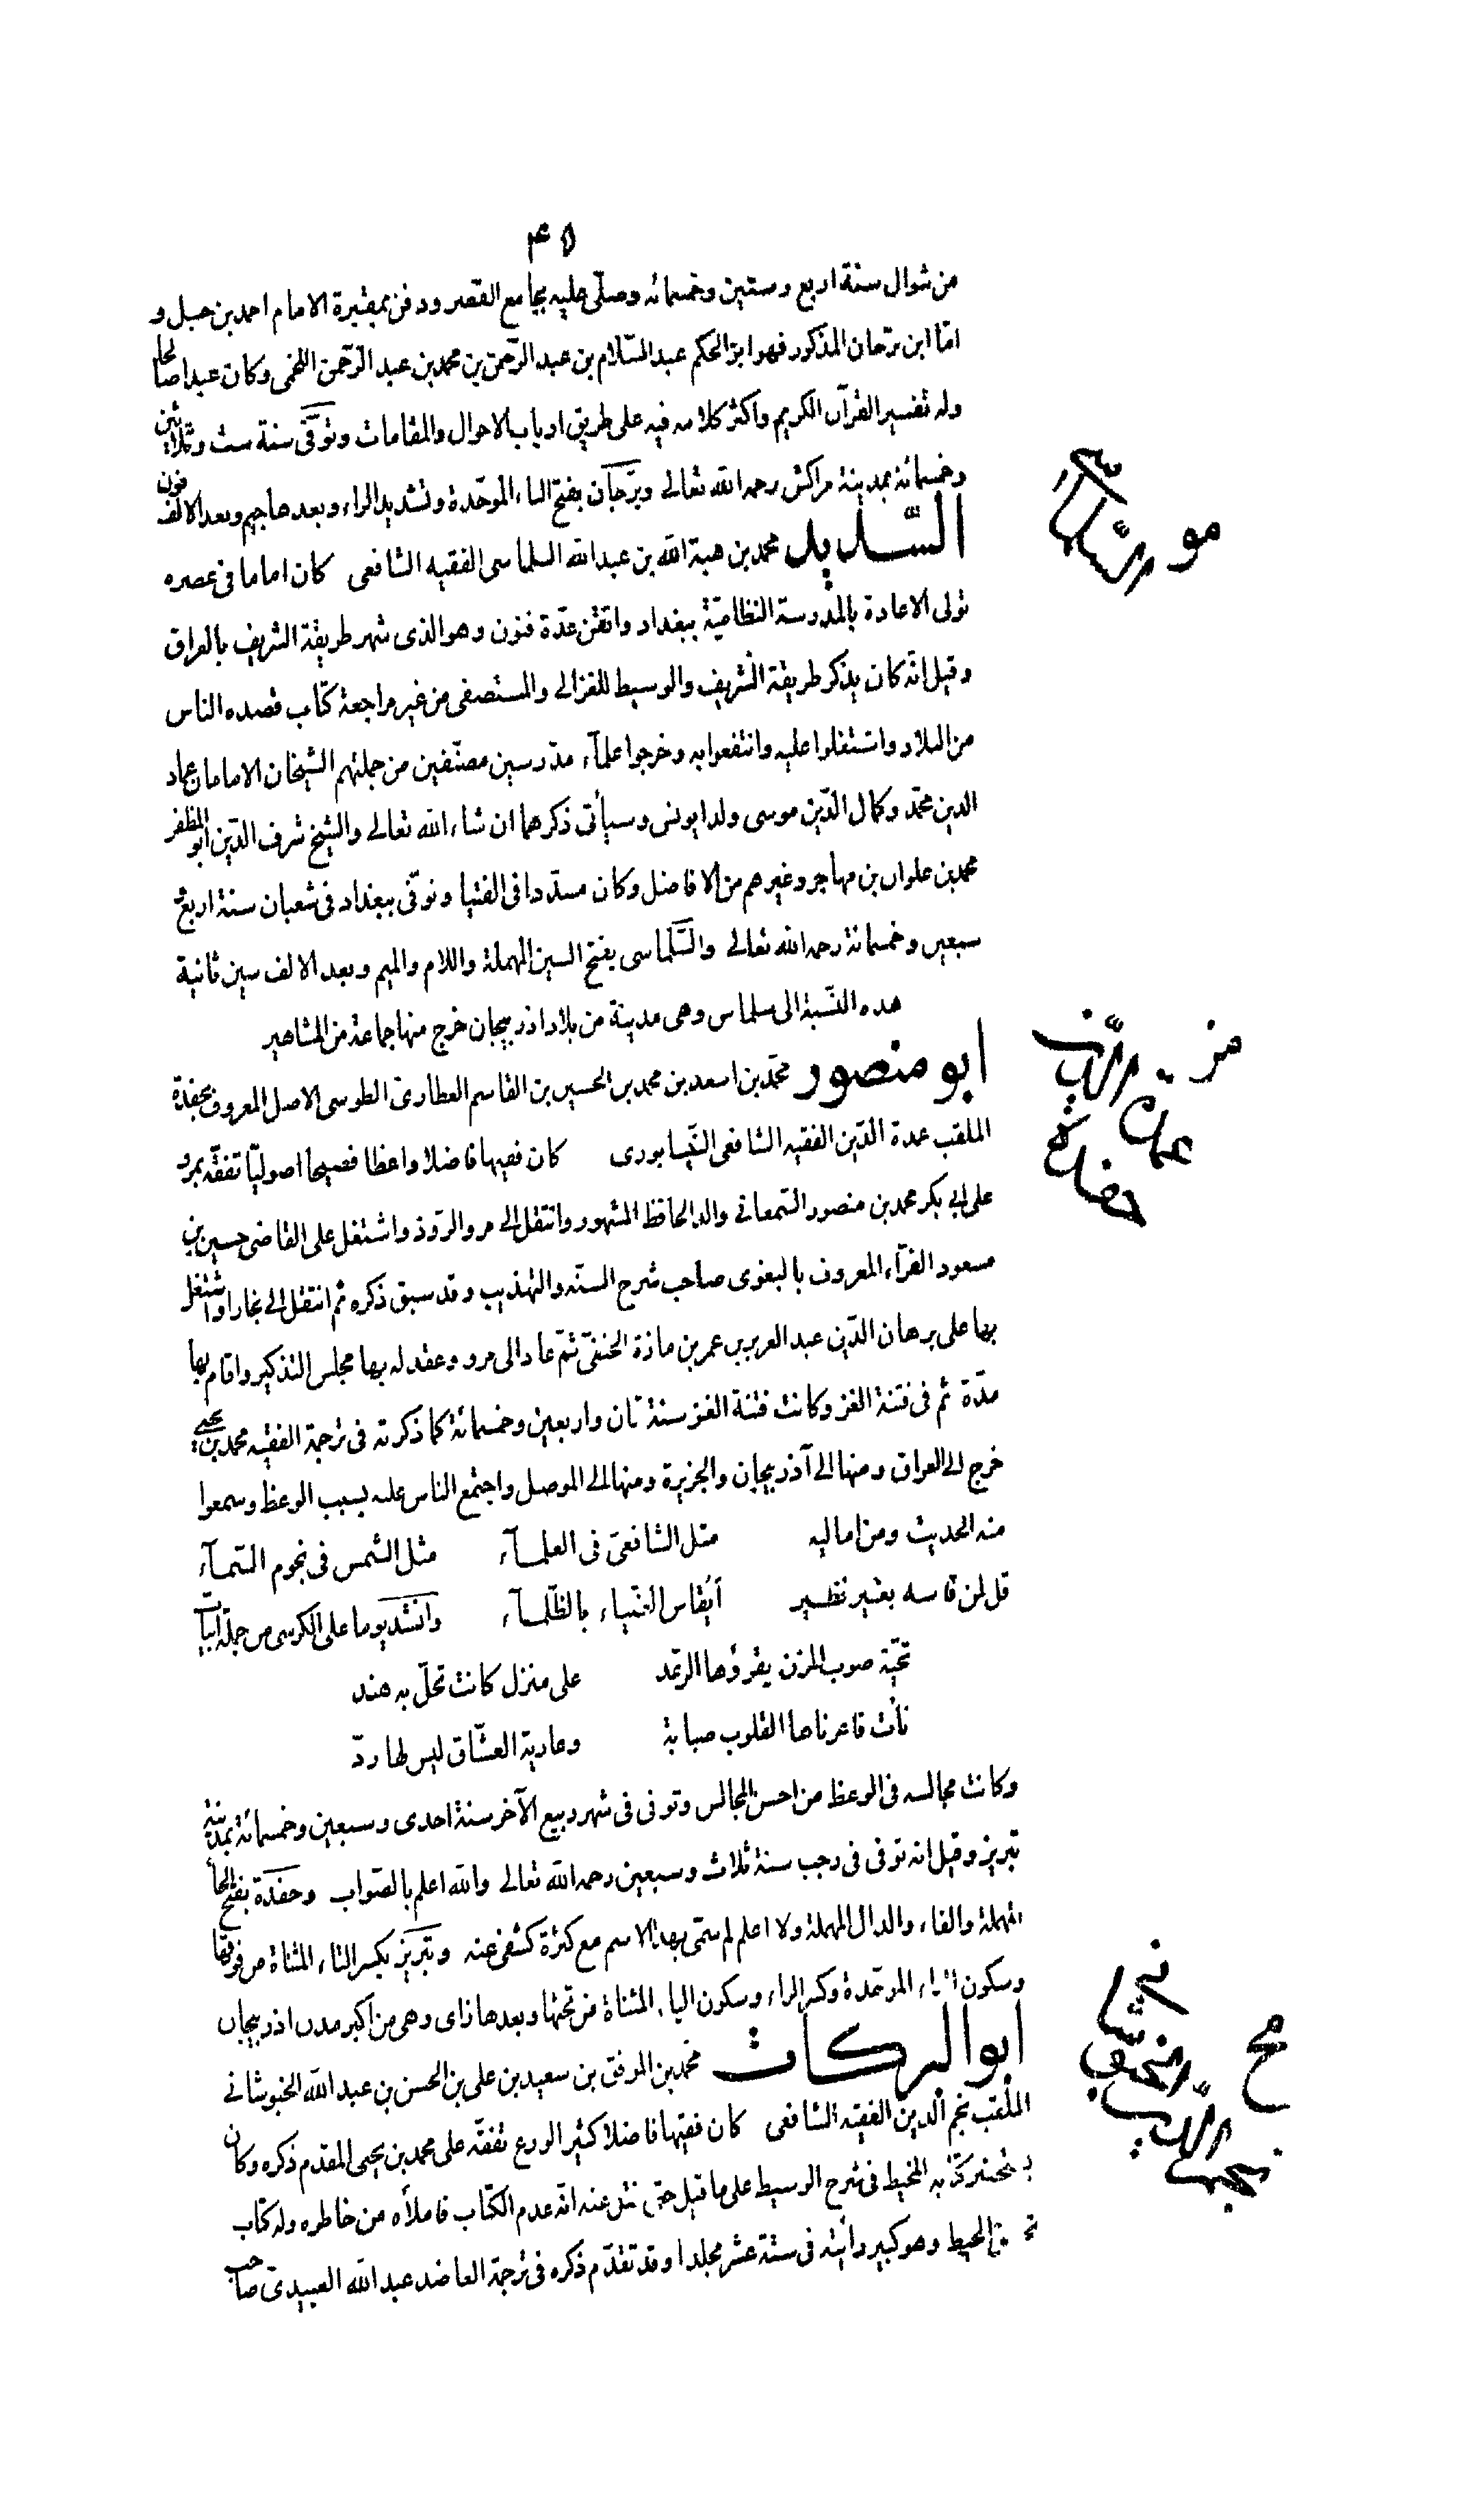 ٤٥
من شوال سنة اربع وستين وخمسمائه وصلّى عليه بجامع القصر ودفن بمقبرة الامام احمد بن حنبل و
امّا ابن برجان المذكور فهو ابو الحكم عبد السّلام بن عبد الرّحمن بن محمد بن عبد الرّحمن اللخمى وكان عبدا صالحا
وله تفسير القرآن الكريم واكثر كلامه فيه على طريق ارباب الاحوال والمقامات وتوفّى سنة ست وثلاثين
وخمسمائة بمدينة مراكش رحمه الله تعالى وبرّجان بفتح الباء الموحّدة وتشديد الراء وبعدها جيم وبعد الالف نون
السّديد محمد بن هبة الله بن عبد الله السلماسى الفقيه الشافعى كان اماما فى عصره
تولى الاعادة بالمدرسة النظاميّة ببغداد واتقن عدّة فنون وهو الذى شهر طريقة الشريف بالعراق
وقيل انّه كان يذكر طريقة الشريف والوسيط للغزالى والمستصفى من غير مراجعة كتاب قصده الناس
من البلاد واشتغلوا عليه وانتفعوا به وخرجوا علمآء مدّرسين مصنّفين من جملتهم الشيخان الامامان عماد
الدين محمّد وكمال الدّين موسى ولدا يونس وسيأتى ذكرهما ان شاء الله تعالى والشيخ شرف الدّين ابو المظفر
محمد بن علوان بن مهاجر وغيرهم من الافاضل وكان مسدّدا فى الفتيا وتوفّى ببغداد فى شعبان سنة اربع و
سبعين وخمسمائة رحمه الله تعالى والسّلماسى بفتح السين المهملة واللام والميم وبعد الالف سين ثانية
هذه النّسبة الى سلماس وهى مدينة من بلاد اذربيجان خرج منها جماعة من المشاهير
ابو منصور محمّد بن اسعد بن محمد بن الحسين بن القاسم العطارى الطوسى الاصل المعروف بحفدة
الملقب عمدة الدّين الفقيه الشافعى النّيسابورى كان فقيها فاضلا واعظا فصيحا اصوليّا تفقّه بمرو
على ابى بكر محمد بن منصور السّمعانى والد الحافظ المشهور وانتقل الى مرو الرّوذ واشتغل على القاضى حسين بن
مسعود الفرّاء المعروف بالبغوى صاحب شرح السنّه والتهذيب وقد سبق ذكره ثم انتقل الى بخارا واشتغل
بها على برهان الدّين عبد العزيز بن عمر بن مازة الحنفىّ ثمّ عاد الى مرو وعقد له بها مجلس التذكير واقام بها
مدّة ثم فى فتنة الغز وكانت فتنة الغز سنة ثمان واربعين وخمسمائة كما ذكرته فى ترجمة الفقيه محمد بن يحيى
خرج الى العراق ومنها الى آذربيجان والجزيرة ومنها الى الموصل واجتمع الناس عليه بسبب الوعظ وسمعوا
منه الحديث ومن اماليه مثل الشافعىّ فى العلمآء مثل الشمس فى نجوم السّمآء
قل لمن قاسه بغير نظير أيُقاس الضّياء بالظّلمآء وانشد يوما على الكرسى من جملة ابيات
تحيّة صوب المزن يقرؤها الرّعد على منزل كانت تحلّ به هند
نأت فاعرناها القلوب صبابة وعارية العشّاق ليس لها ردّ
وكانت مجالسه فى الوعظ من احسن المجالس وتوفى فى شهر ربيع الآخر سنة احدى وسبعين وخمسمائة بمدينة
تبريز وقيل انه توفى فى رجب سنة ثلاث وسبعين رحمه الله تعالى والله اعلم بالصّواب وحفدة بفتح الحاء
المهملة والفاء والدال المهملة ولا اعلم لم سمّى بهذا الاسم مع كثرة كشفى عنه وتبريز بكسر التاء المثناة من فوقها
وسكون الباء الموحّدة وكسر الراء وسكون الياء المثناة من تحتها وبعدها زاى وهى من اكبر مدن اذربيجان
ابو البركات محمّد بن الموفق بن سعيد بن على بن الحسن بن عبد الله الخبوشانى
الملقب نجم الدين الفقيه الشافعى كان فقيها فاضلا كثير الورع تفقّه على محمد بن يحيى المقدم ذكره وكان
يستحضر كتابه المحيط فى شرح الوسيط على ما قيل حتى نقل عنه انّه عدم الكتاب فاملأه من خاطره وله كتاب
تحقيق المحيط وهو كبير رأيته فى ستة عشر مجلدا وقد تقدّم ذكره فى ترجمة العاضد عبد الله العبيدىّ صاحب